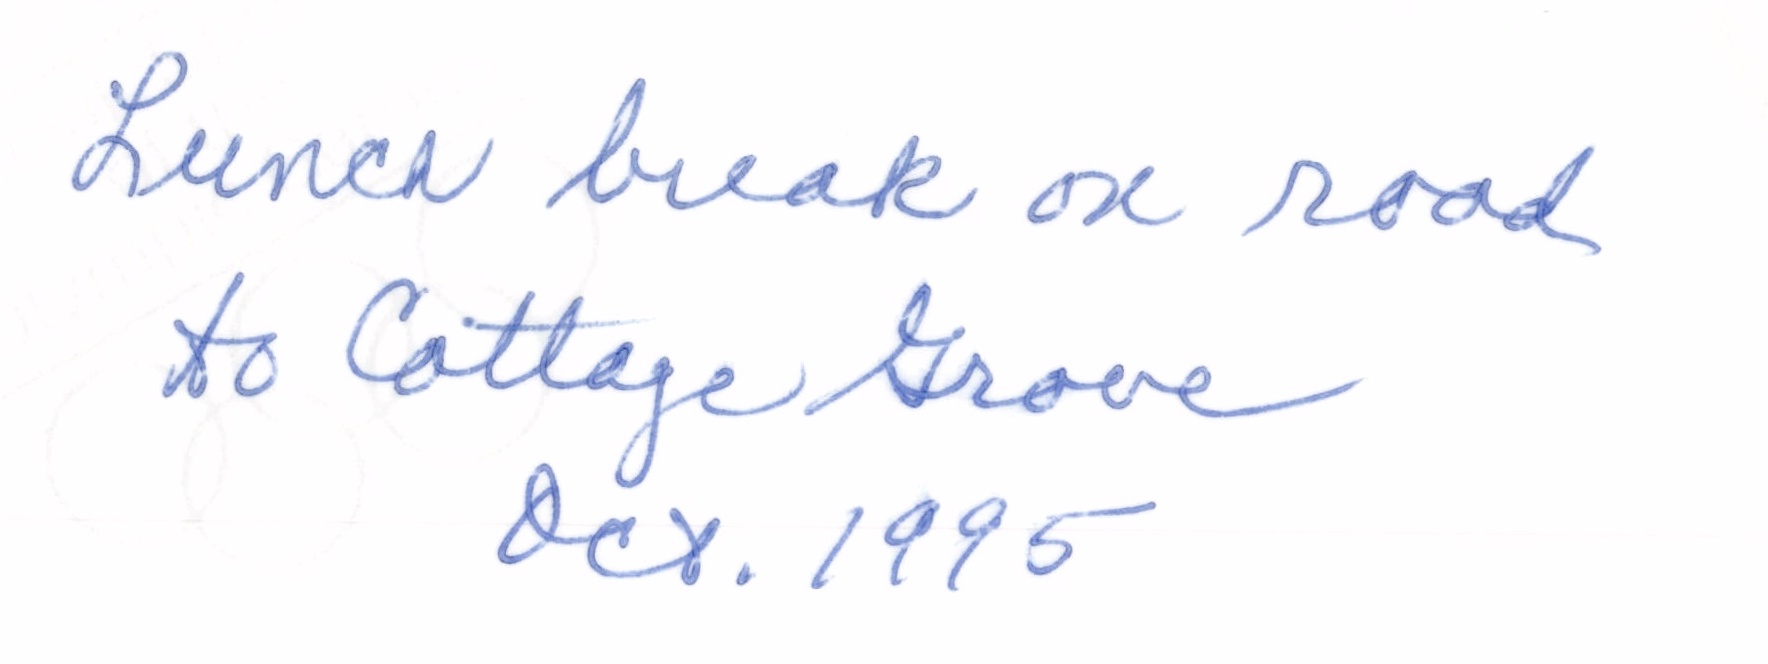 Lunch break on road
to Cottage Grove
Oct. 1995